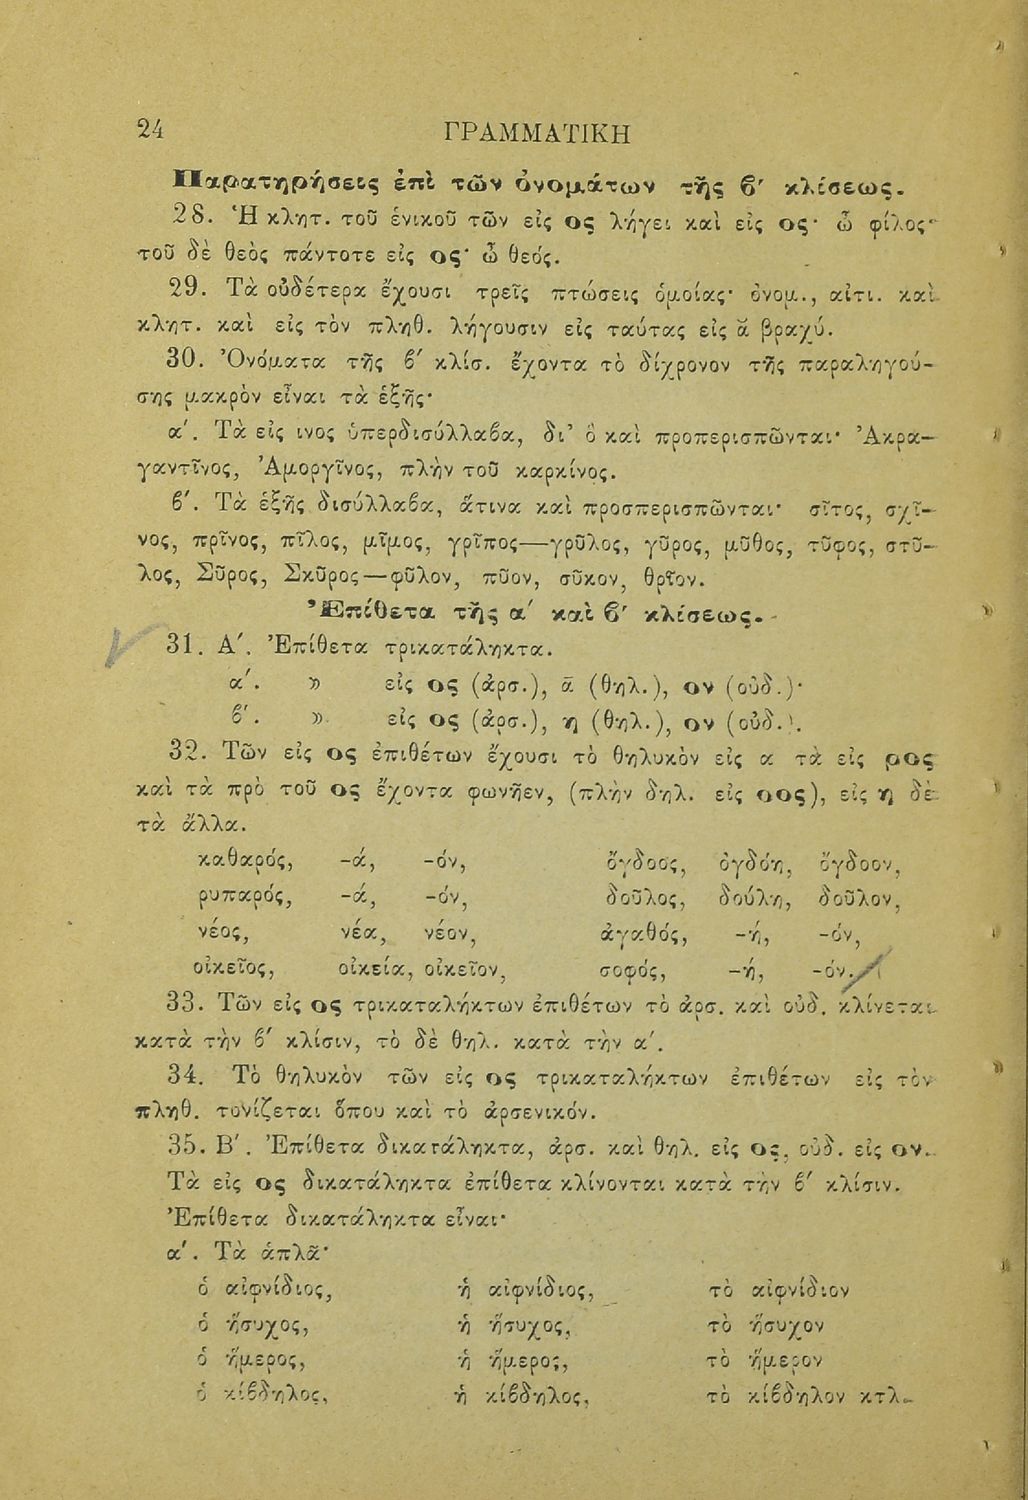 24 ΓΡΑΜΜΑΤΙΚΗ
Παρατηρήσεις ἐπὶ τῶν ὀνομάτων τῆς β′ κλίσεως.
28. Ἡ κλητ. τοῦ ἑνικοῦ τῶν εἰς ος λήγει καὶ εἰς ος· ὦ φίλος·
τοῦ δὲ θεὸς πάντοτε εἰς ος· ὦ θεός.
29. Τὰ οὐδέτερα ἔχουσι τρεῖς πτώσεις ὁμοίας· ὀνομ., αἰτι. καὶ
κλητ. καὶ εἰς τὸν πληθ. λήγουσιν εἰς ταύτας εἰς ᾰ βραχύ.
30. Ὀνόματα τῆς β′ κλίσ. ἔχοντα τὸ δίχρονον τῆς παραληγού-
σης μακρὸν εἶναι τὰ ἑξῆς·
α′. Τὰ εἰς ινος ὑπερδισύλλαβα, δι’ ὃ καὶ προπερισπῶνται· Ἀκρα-
γαντῖνος, Ἀμοργῖνος, πλὴν τοῦ καρκίνος.
β′. Τὰ ἑξῆς δισύλλαβα, ἅτινα καὶ προσπερισπῶνται· σῖτος, σχῖ-
νος, πρῖνος, πῖλος, μῖμος, γρῖπος—γρῦλος, γῦρος, μῦθος, τῦφος, στῦ-
λος, Σῦρος, Σκῦρος—φῦλον, πῦον, σῦκον, θρῖον.
Ἐπίθετα τῆς α′ καὶ β′ κλίσεως.
31. Α′. Ἐπίθετα τρικατάληκτα.
α′. » εἰς ος (ἀρσ.), ᾱ (θηλ.), ον (οὐδ.)·
β′. » εἰς ος (ἀρσ.), η (θηλ.), ον (οὐδ.).
32. Τῶν εἰς ος ἐπιθέτων ἔχουσι τὸ θηλυκὸν εἰς α τὰ εἰς ρος
καὶ τὰ πρὸ τοῦ ος ἔχοντα φωνῆεν, (πλὴν δηλ. εἰς οος), εἰς η δὲ
τὰ ἄλλα.
καθαρός, -ά, -όν, ὄγδοος, ὀγδόη, ὄγδοον,
ρυπαρός, -ά, -όν, δοῦλος, δούλη, δοῦλον,
νέος, νέα, νέον, ἀγαθός, -ή, -όν,
οἰκεῖος, οἰκεία, οἰκεῖον, σοφός, -ή, -όν.
33. Τῶν εἰς ος τρικαταλήκτων ἐπιθέτων τὸ ἀρσ. καὶ οὐδ. κλίνεται
κατὰ τὴν β′ κλίσιν, τὸ δὲ θηλ. κατὰ τὴν α′.
34. Τὸ θηλυκὸν τῶν εἰς ος τρικαταλήκτων ἐπιθέτων εἰς τὸν
πληθ. τονίζεται ὅπου καὶ τὸ ἀρσενικόν.
35. Β′. Ἐπίθετα δικατάληκτα, ἀρσ. καὶ θηλ. εἰς ος, οὐδ. εἰς ον.
Τὰ εἰς ος δικατάληκτα ἐπίθετα κλίνονται κατὰ τὴν β′ κλίσιν.
Ἐπίθετα δικατάληκτα εἶναι·
α′. Τὰ ἁπλᾶ·
ὁ αἰφνίδιος, ἡ αἰφνίδιος, τὸ αἰφνίδιον
ὁ ἥσυχος, ἡ ἥσυχος, τὸ ἥσυχον
ὁ ἥμερος, ἡ ἥμερος, τὸ ἥμερον
ὁ κίβδηλος, ἡ κίβδηλος, τὸ κίβδηλον κτλ.